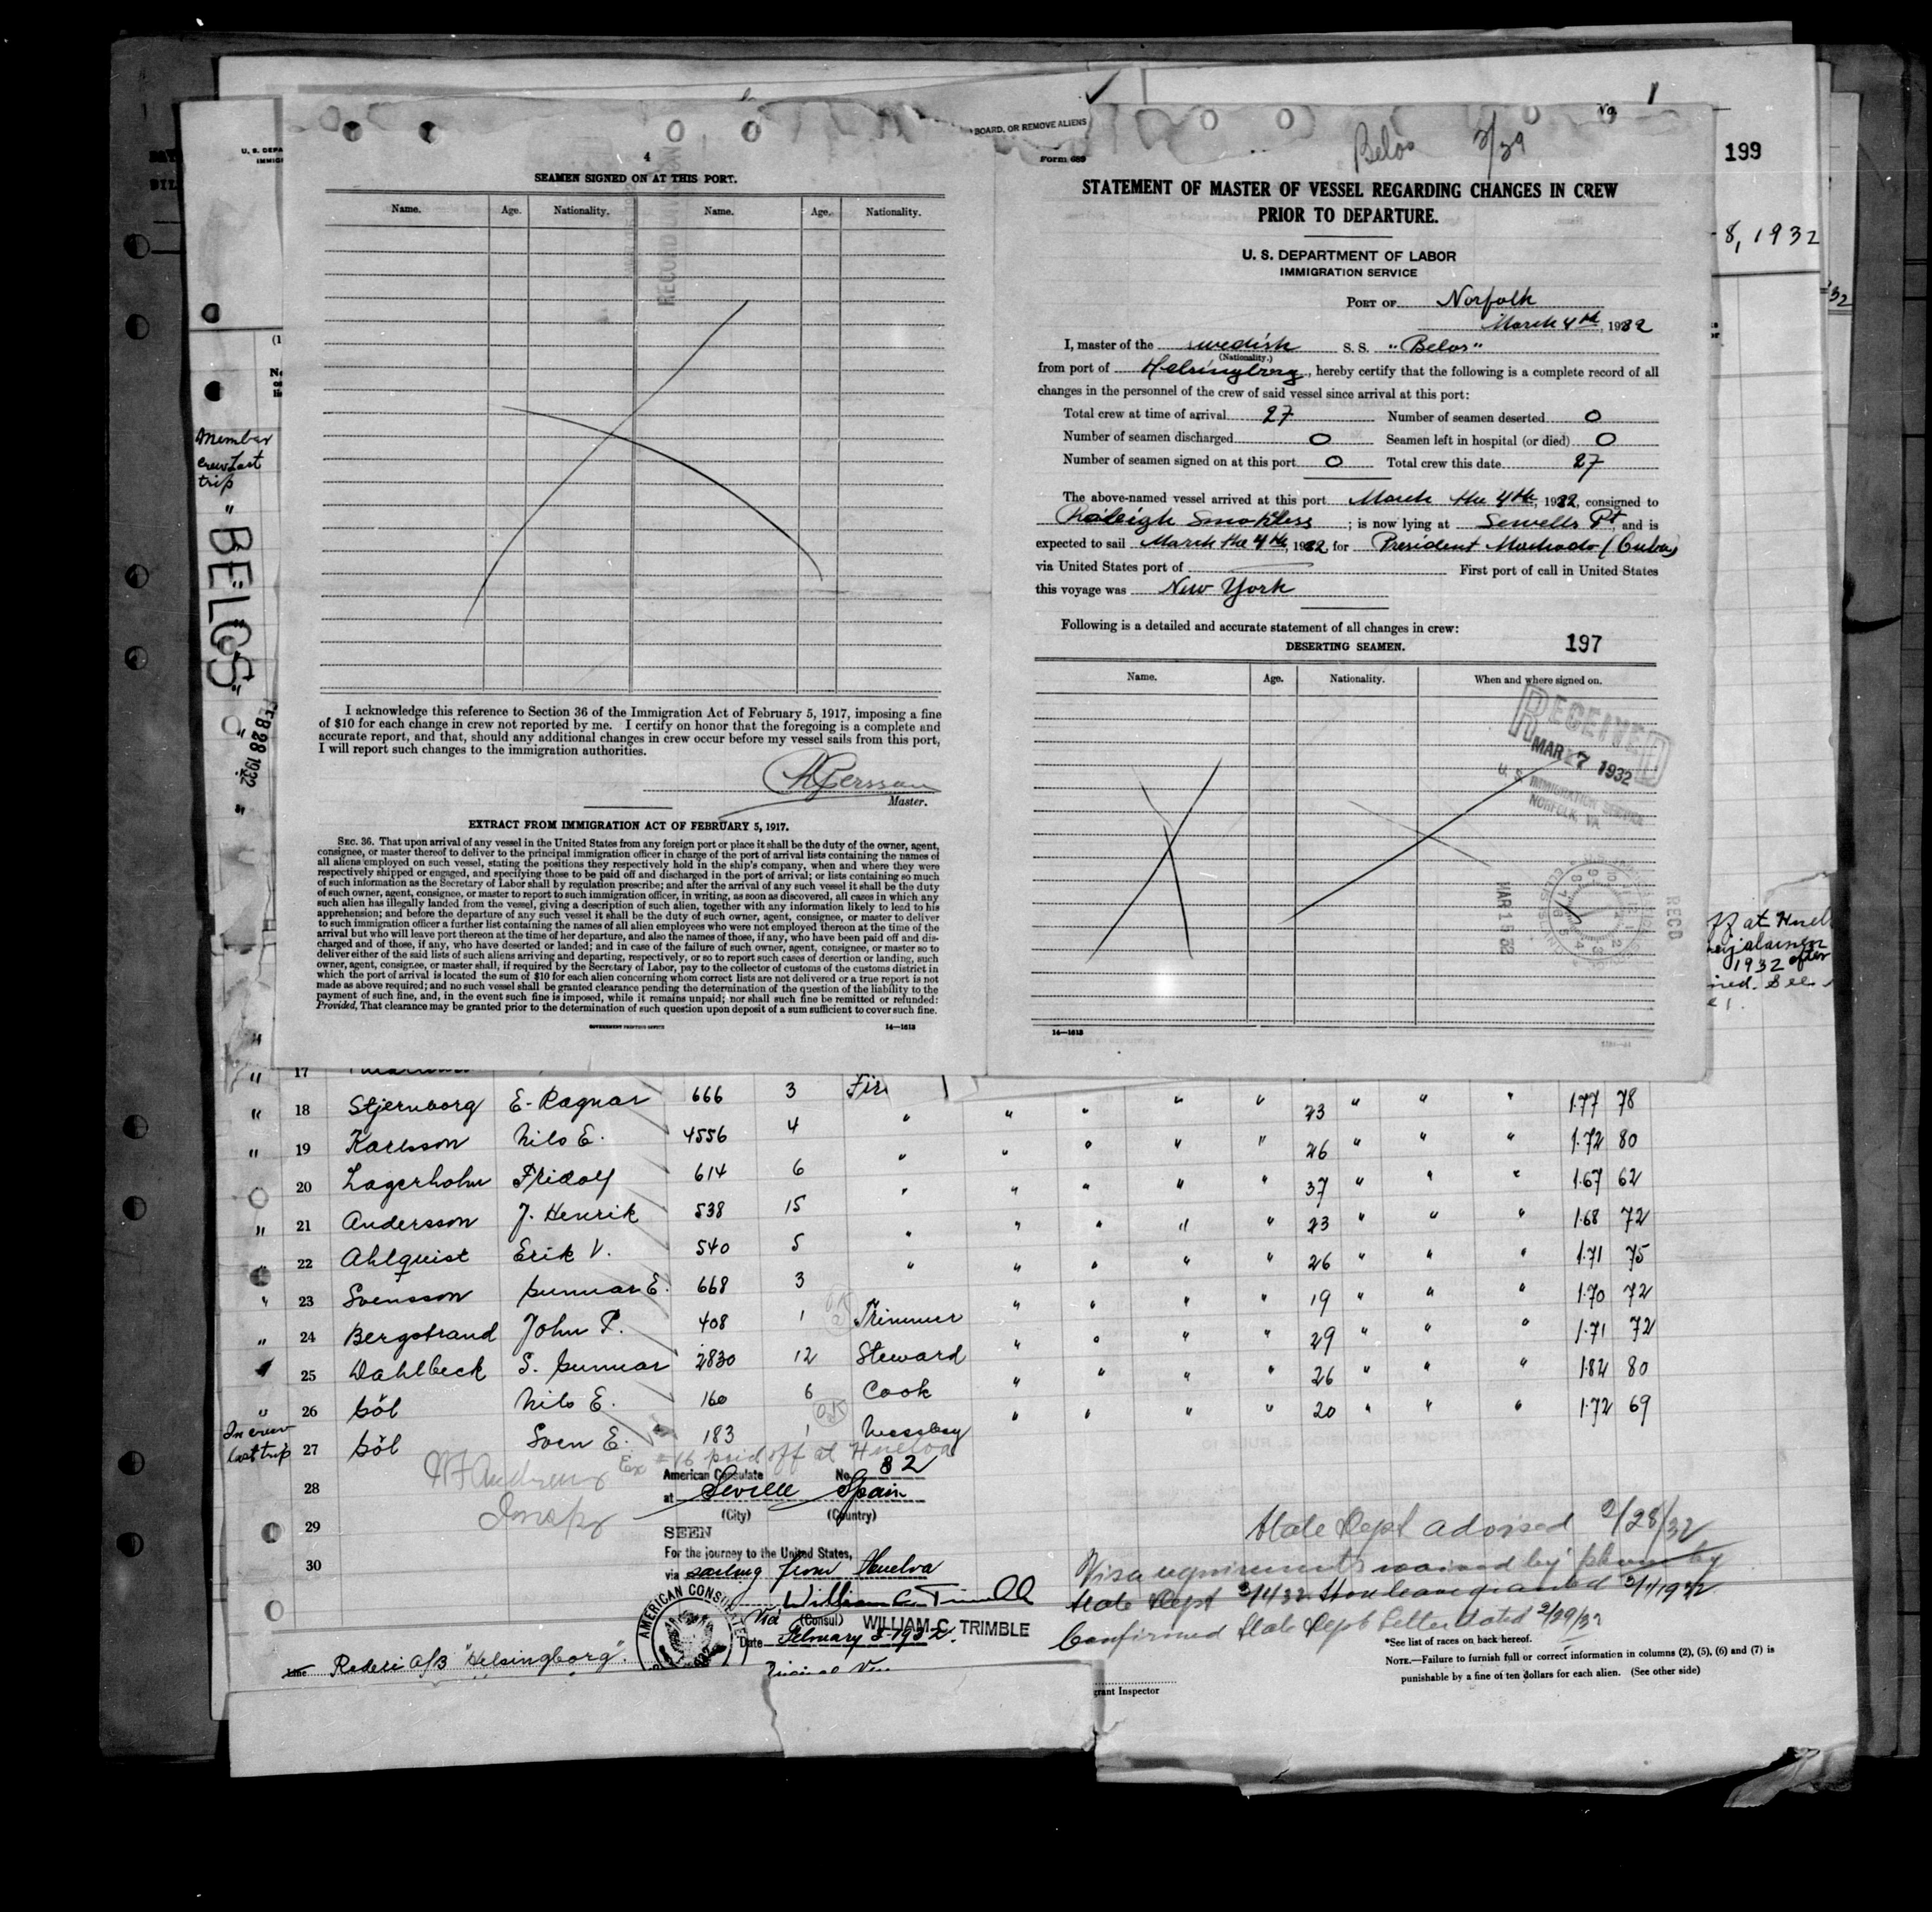 199
8, 1932
U. S. DEPA
IMMIG
Member
crew last
trip
"BELOS"
FEB 28 1932
4
SEAMEN SIGNED ON AT THIS PORT.
Name. Age. Nationality. Name. Age. Nationality.
I acknowledge this reference to Section 36 of the Immigration Act of February 5, 1917, imposing a fine
of $10 for each change in crew not reported by me. I certify on honor that the foregoing is a complete and
accurate report, and that, should any additional changes in crew occur before my vessel sails from this port,
I will report such changes to the immigration authorities.
Persson
Master.
EXTRACT FROM IMMIGRATION ACT OF FEBRUARY 5, 1917.
SEC. 36. That upon arrival of any vessel in the United States from any foreign port or place it shall be the duty of the owner, agent,
consignee, or master thereof to deliver to the principal immigration officer in charge of the port of arrival lists containing the names of
all aliens employed on such vessel, stating the positions they respectively hold in the ship's company, when and where they were
respectively shipped or engaged, and specifying those to be paid off and discharged in the port of arrival; or lists containing so much
of such information as the Secretary of Labor shall by regulation prescribe; and after the arrival of any such vessel it shall be the duty
of such owner, agent, consignee, or master to report to such immigration officer, in writing, as soon as discovered, all cases in which any
such alien has illegally landed from the vessel, giving a description of such alien, together with any information likely to lead to his
apprehension; and before the departure of any such vessel it shall be the duty of such owner, agent, consignee, or master to deliver
to such immigration officer a further list containing the names of all alien employees who were not employed thereon at the time of the
arrival but who will leave port thereon at the time of her departure, and also the names of those, if any, who have been paid off and dis-
charged and of those, if any, who have deserted or landed; and in case of the failure of such owner, agent, consignee, or master so to
deliver either of the said lists of such aliens arriving and departing, respectively, or so to report such cases of desertion or landing, such
owner, agent, consignee, or master shall, if required by the Secretary of Labor, pay to the collector of customs of the customs district in
which the port of arrival is located the sum of $10 for each alien concerning whom correct lists are not delivered or a true report is not
made as above required; and no such vessel shall be granted clearance pending the determination of the question of the liability to the
payment of such fine, and, in the event such fine is imposed, while it remains unpaid; nor shall such fine be remitted or refunded:
Provided, That clearance may be granted prior to the determination of such question upon deposit of a sum sufficient to cover such fine.
GOVERNMENT PRINTING OFFICE 14—1613
BOARD, OR REMOVE ALIENS
Form 689
Belos 3/29
No.
STATEMENT OF MASTER OF VESSEL REGARDING CHANGES IN CREW
PRIOR TO DEPARTURE.
U. S. DEPARTMENT OF LABOR
IMMIGRATION SERVICE
PORT OF Norfolk
March 4th, 1932
I, master of the swedish S. S. "Belos"
(Nationality.)
from port of Helsingborg, hereby certify that the following is a complete record of all
changes in the personnel of the crew of said vessel since arrival at this port:
Total crew at time of arrival 27 Number of seamen deserted 0
Number of seamen discharged 0 Seamen left in hospital (or died) 0
Number of seamen signed on at this port 0 Total crew this date 27
The above-named vessel arrived at this port March the 4th, 1932, consigned to
Raleigh Smokless; is now lying at Sewells Pt, and is
expected to sail March the 4th, 1932, for President Machado (Cuba)
via United States port of First port of call in United States
this voyage was New York
Following is a detailed and accurate statement of all changes in crew:
197
DESERTING SEAMEN.
Name. Age. Nationality. When and where signed on.
RECEIVED
MAR 7 1932
U. S. IMMIGRATION SERVICE
NORFOLK, VA.
MAR 15 32
RECD
14—1613
17
" 18 Stjernborg E. Ragnar 666 3 Fir " " 23 " " " 1.77 78
" 19 Karlsson Nils E. 4556 4 " " " " " 26 " " " 1.72 80
20 Lagerholm Fridolf 614 6 " " " " " 37 " " " 1.67 62
" 21 Andersson J. Henrik 538 15 " " " " " 23 " " " 1.68 72
" 22 Ahlquist Erik V. 540 5 " " " " " 26 " " " 1.71 75
" 23 Svensson Gunnar E. 668 3 " " " " " 19 " " " 1.70 72
" 24 Bergstrand John P. 408 1 Trimmer " " " " 29 " " " 1.71 72
25 Dahlbeck S. Gunnar 2830 12 Steward " " " " 26 " " " 1.84 80
" 26 Göl Nils E. 160 6 Cook " " " " 20 " " " 1.72 69
In crew
last trip 27 Göl Sven E. 183 1 Messboy
Ex #16 paid off at Huelva
28
29
30
American Consulate No. 82
at Seville Spain
(City) (Country)
SEEN
For the journey to the United States,
via sailing from Huelva
William C. Trimble
(Consul) WILLIAM C. TRIMBLE
Date February 5 1932.
AMERICAN CONSULATE
State Dept advised 2/28/32
Visa requirements waived by phone by
State Dept 3/1/32 Shore leave granted 3/1/1932
Confirmed State Dept letter dated 2/29/32
Line Rederi A/B "Helsingborg".
*See list of races on back hereof.
NOTE.—Failure to furnish full or correct information in columns (2), (5), (6) and (7) is
punishable by a fine of ten dollars for each alien. (See other side)
grant Inspector